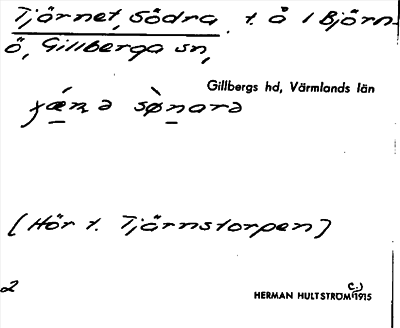 Tjörnet, Södra t. å / Björn-
ö, Gillberga sn,
Gillbergs hd, Värmlands län
[Hör t. Tjärnstorpen]
2
c.)
HERMAN HULTSTRÖM 1915